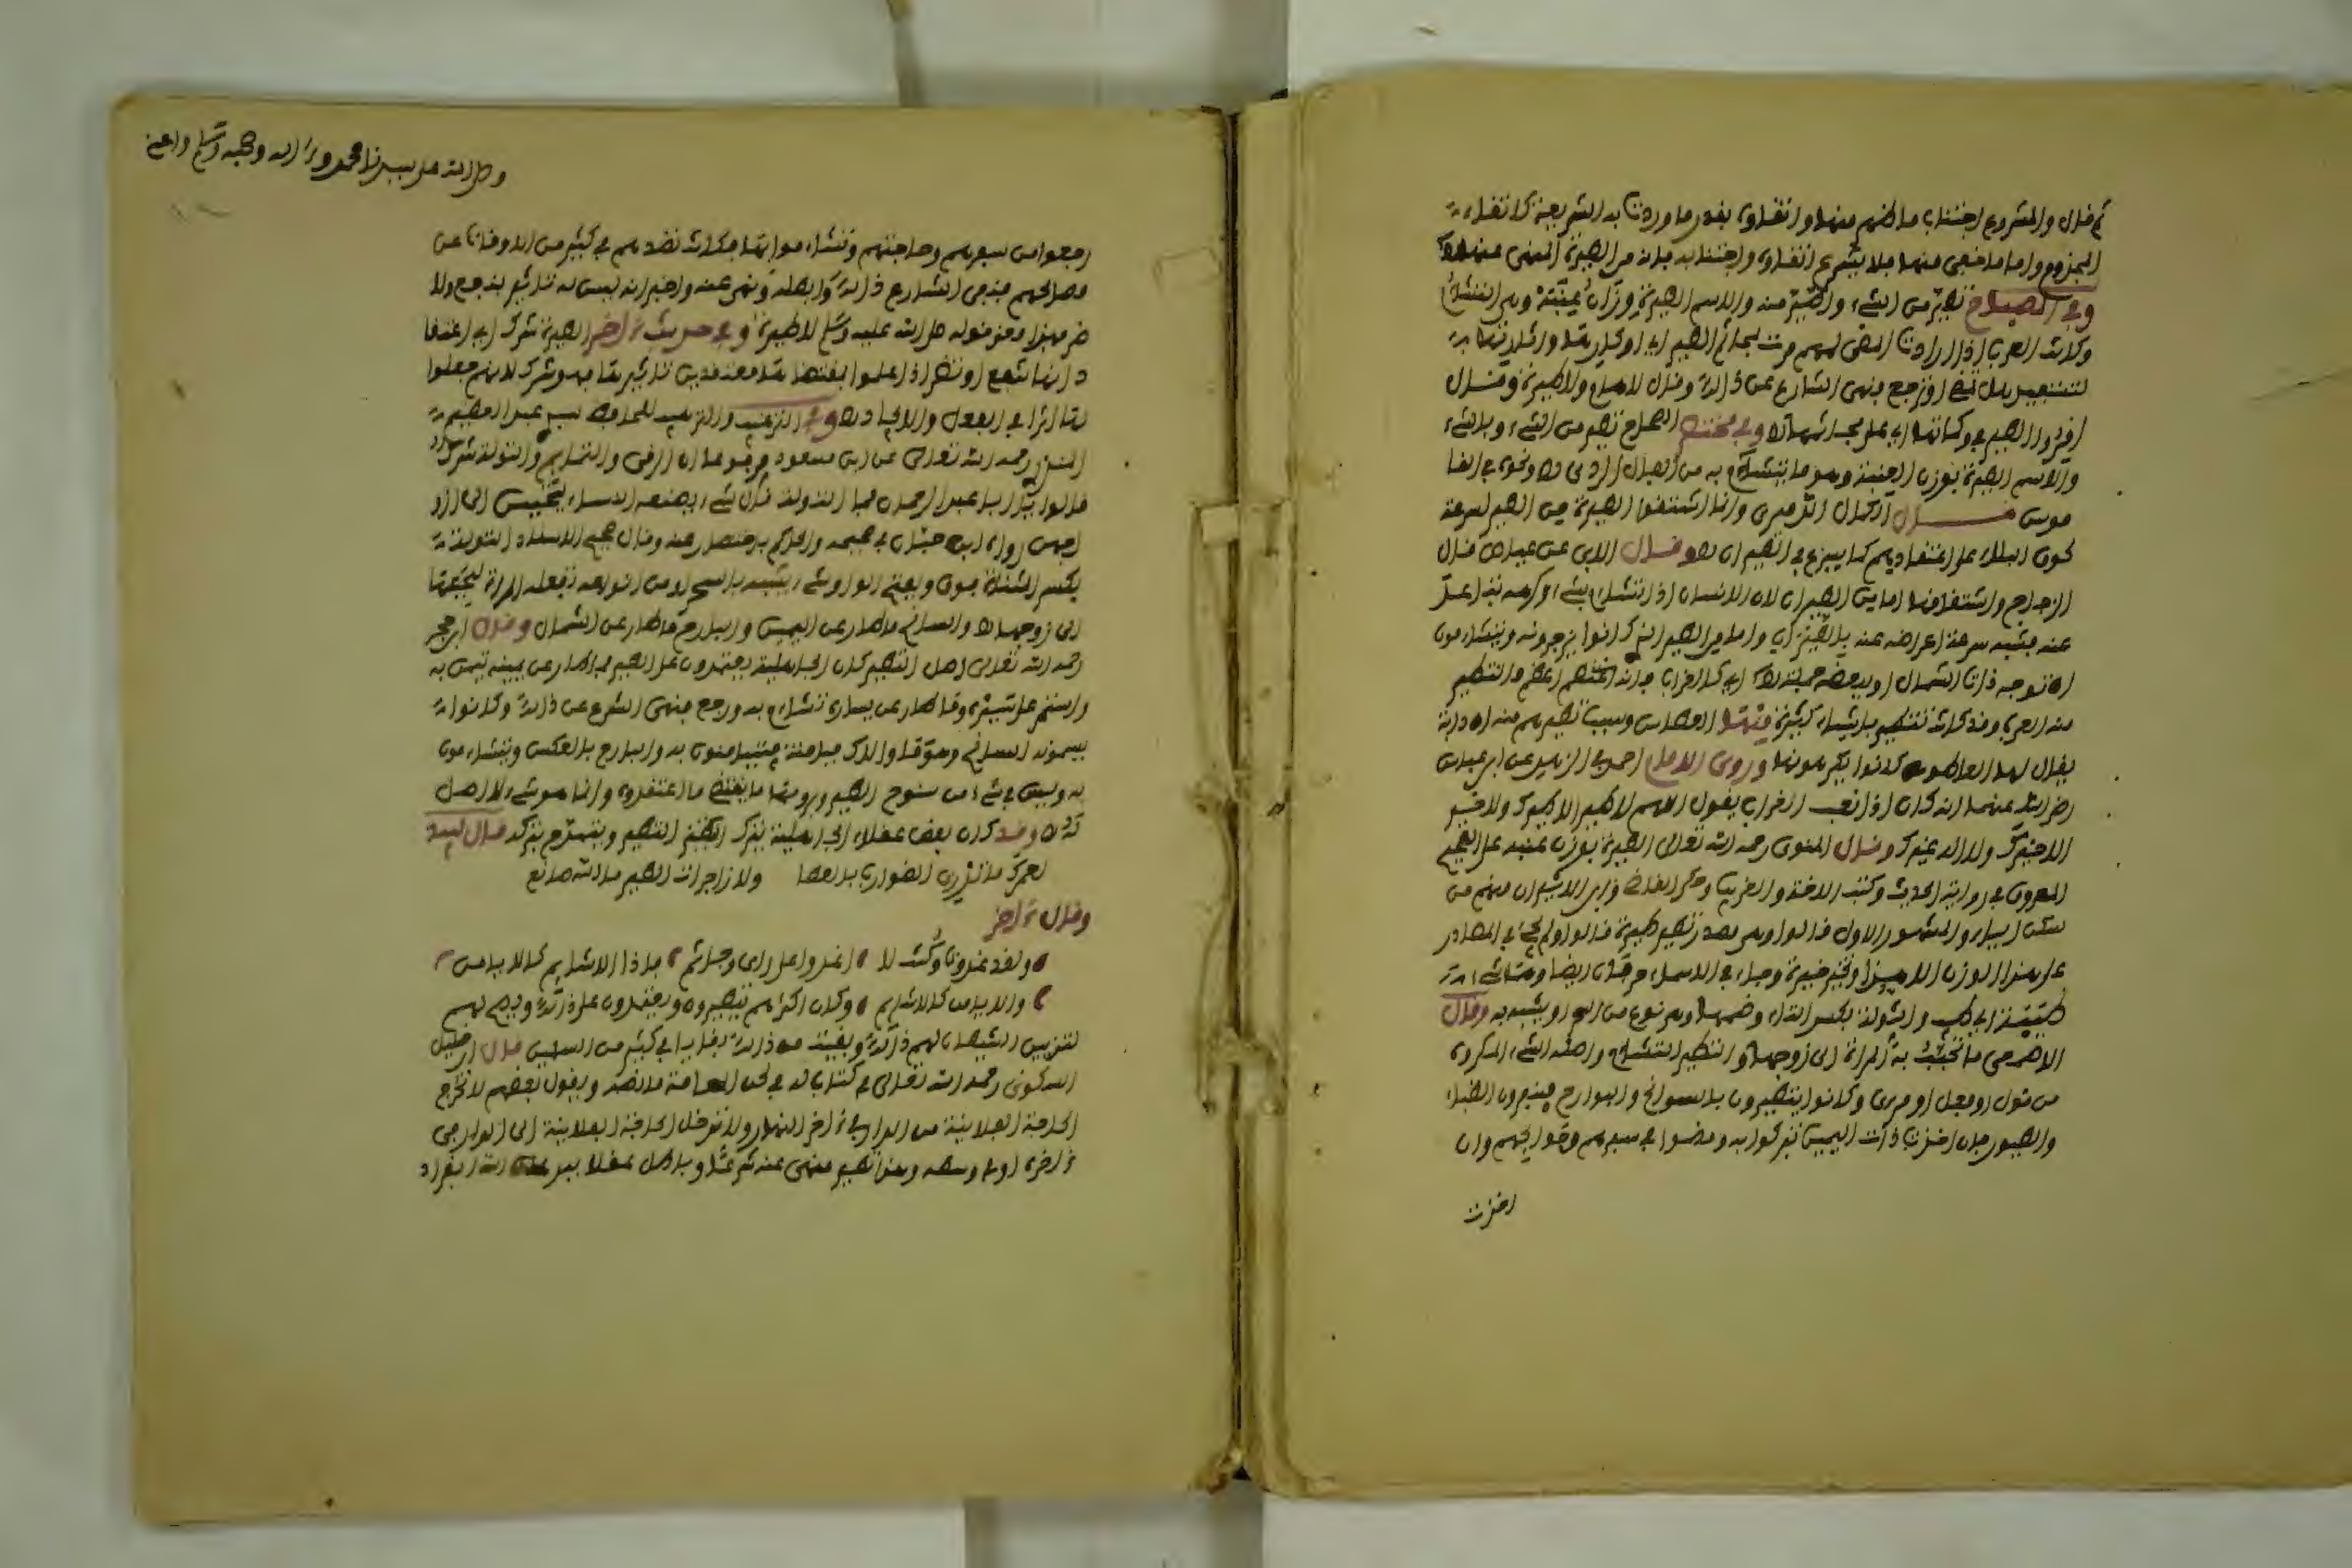 ثم قال والمشروع اجتناب ما ظهر منها واتقاؤه بقدر ما وردت به الشريعة كاتقاء
المجذوم واما ما خفي منها فلا يشرع اتقاؤه واجتنابه فانه من الطيرة المنهي عنها
وفي المصباح تطير من الشيء واطير منه والاسم الطيرة وزان عنبة وهي التشاؤم
وكانت العرب اذا ارادت المضي لمهم مرت بمجاثم الطير اي اوكارها واثارتها
لتستفيد هل تمضي او ترجع فنهى الشارع عن ذلك وقال لا هام ولا طيرة وقال
اقروا الطير في وكناتها اي على مجاثمها وفي مختصر الصحاح تطير من الشيء وبالشيء
والاسم الطيرة بوزن العنبة وهو ما يتشاءم به من الفال الردي ونحوه في القا
موس قال الكمال الدميري وانما اشتقوا الطيرة من الطير لسرعة
لحوق البلاء على اعتقادهم كما يسرع في الطيران وقال الابي عن عياض قال
الزجاج واشتقاقها اما من الطيران لان الانسان اذا تشاءم بشيء او كرهه تباعد
عنه فشبه سرعة اعراضه عنه بالطيران واما من الطير الذي كانوا يزجرونه ويتشاءمون
ان توجه ذات الشمال
منه العرب وقد كانت تتطير باشياء كثيرة منها العطاس وسبب تطيرهم منه ان دابة
يقال لها العاطوس كانوا يكرهونها وروى الامام احمد في الزهد عن ابن عباس
رضي الله عنهما انه كان اذا نعب الغراب يقول اللهم لا طير الا طيرك ولا خير
الا خيرك ولا اله غيرك وقال النووي رحمه الله تعالى الطيرة بوزن عنبة على الصحيح
المعروف في رواية الحديث وكتب اللغة والغريب وحكى القاضي وابن الاثير ان منهم من
سكن الياء والمشهور الاول قالوا وهي مصدر تطير طيرة قالوا ولم يجئ في المصادر
على هذا الوزن الا هذا وتخير خيرة وجاء في الاسماء حرفان ايضا وهما شيء
طيبة اي طيب والتولة بكسر التاء وضمها وهو نوع من السحر او يشبهه وقال
الاصمعي ما تحبب به المراة الى زوجها والتطير التشاؤم واصله الشيء المكروه
من قول او فعل او مرئي وكانوا يتطيرون بالسوانح والبوارح فينفرون الظباء
والطيور فان اخذت ذات اليمين تبركوا به ومضوا في سفرهم وحوائجهم وان
اخذت
وصلى الله على سيدنا محمد وعلى آله وصحبه وسلم
رجعوا من سفرهم وحاجتهم وتشاءموا بها فكانت تصدهم في كثير من الاوقات عن
مصالحهم فنفى الشارع ذلك وابطله ونهى عنه واخبر انه ليس له تاثير بنفع ولا
ضر فهذا معنى قوله صلى الله عليه وسلم لا طيرة وفي حديث ءاخر الطيرة شرك اي اعتقا
د انها تنفع او تضر اذا عملوا بمقتضاها معتقدين تاثيرها فهو شرك لانهم جعلوا
لها اثرا في الفعل والايجاد وفي الترغيب والترهيب للحافظ سيدي عبد العظيم
المنذري رحمه الله تعالى عن ابن مسعود مرفوعا ان الرقى والتمائم والتولة شرك
قالوا يا ابا عبد الرحمان فما التولة قال شيء يصنعه النساء يتحببن الى ازو
اجهن رواه ابن حبان في صحيحه والحاكم باختصار عنه وقال صحيح الاسناد التولة
بكسر المثناة فوق وبفتح الواو شيء يشبه بالسحر او من انواعه تفعله المراة ليحببها
الى زوجها والسانح ما طار عن اليمين والبارح ما طار عن الشمال وقال ابن حجر
رحمه الله تعالى اصل التطير كان الجاهلية يعتمدون على الطير فما طار عن يمينه تيمن به
واستمر على سيره وما طار عن يساره تشاءم به ورجع فنهى الشرع عن ذلك وكانوا
يسمونه السانح
به وليس في شيء من سنوح الطير وبروحها ما يقتضي ما اعتقدوه وانما هو شيء لا اصل
له وقد كان بعض عقلاء الجاهلية ينكر التطير ويتمدح بتركه قال لبيد
لعمرك ما تدري الضوارب بالحصا ولا زاجرات الطير ما الله صانع
وقال ءاخر
ولقد غدوت وكنت لا اغدو على راى وحائم فاذا الاشايم كالايامن
والايامن كالاشايم وكان اكثرهم يتطيرون ويعتمدون على ذلك ويصح لهم
لتزيين الشيطان لهم ذلك وبقيت من ذلك بقايا في كثير من المسلمين قال ابن خليل
السكوني رحمه الله تعالى في كتاب له في لحن العامة ما نصه ويقول بعضهم لا تخرج
الحاجة الفلانية من الدار في ءاخر النهار ولا تدخل الحاجة الفلانية الى الدار في
ءاخره او في وسطه وهذا تطير منهي عنه شرعا وباطل عقلا